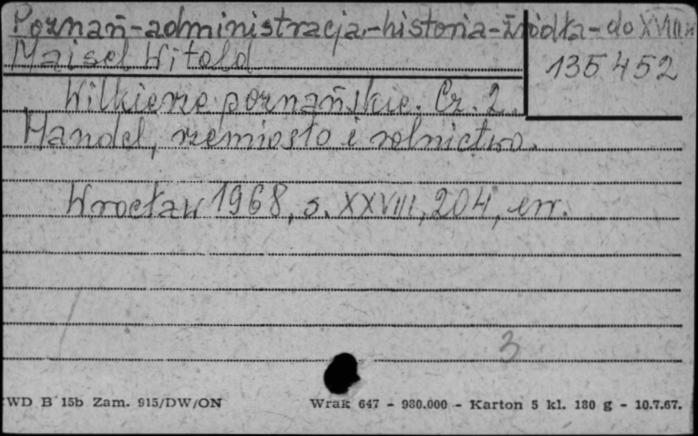 Poznań-administracja-historia-źródła-do XVIII w
Maisel Witold
135 452
Wilkierze poznańskie. Cz. 2.
Handel, rzemiosło i rolnictwo.
Wrocław 1968, s. XXVIII, 204, err.
3
WD B 15b Zam. 915/DW/ON Wrak 647 - 980.000 - Karton 5 kl. 180 g - 10.7.67.